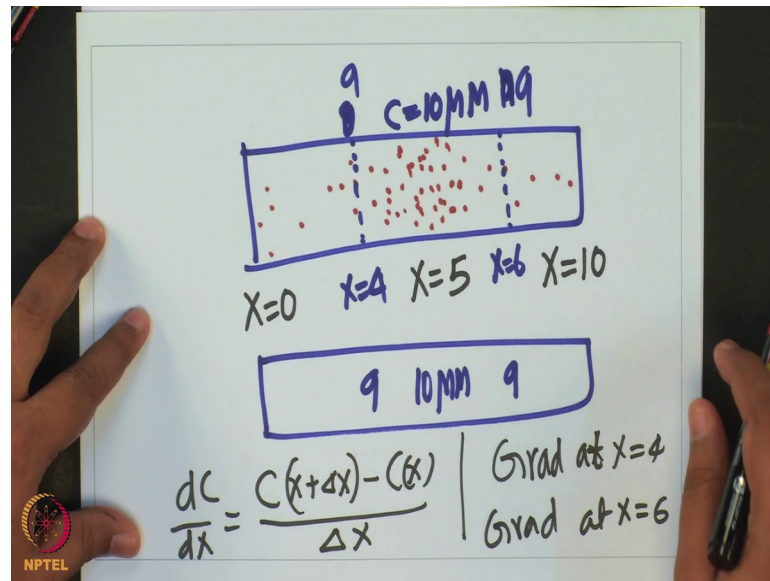 9
C=10μM 9
X=0 X=4 X=5 X=6 X=10
9 10μM 9
dC/dX = C(x+Δx)-C(x)/ΔX
Grad at X=4
Grad at X=6
NPTEL